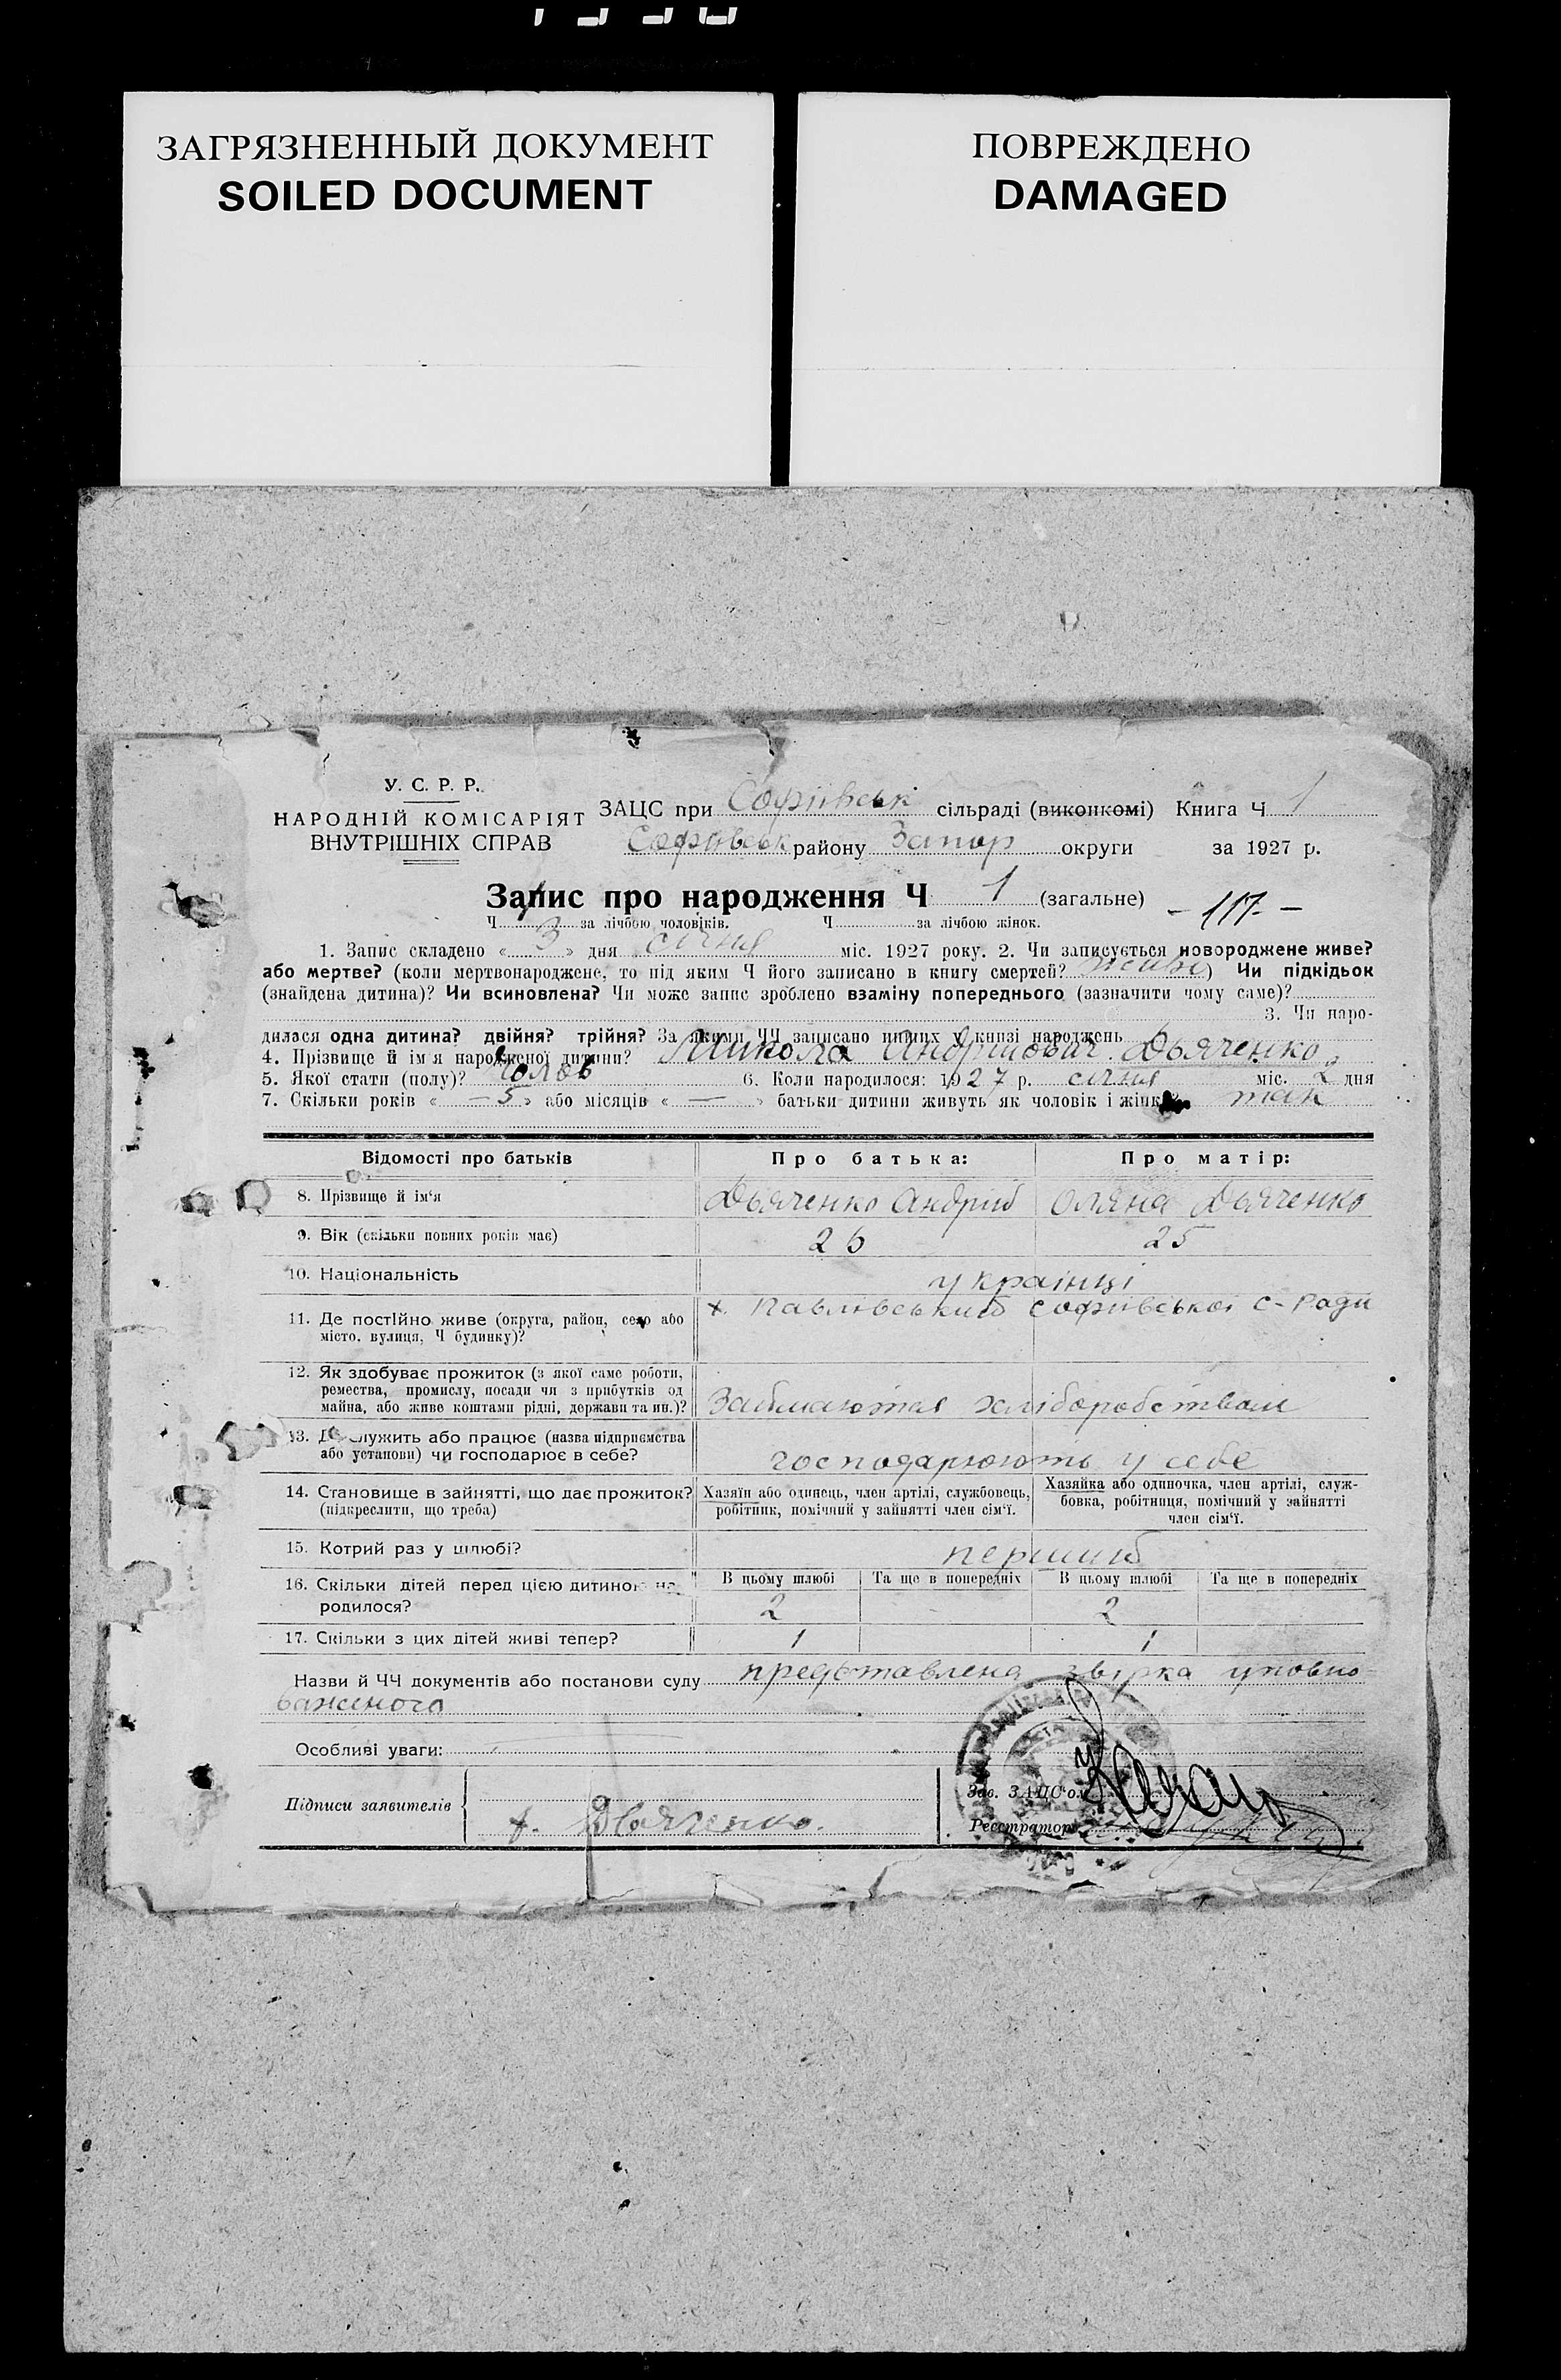 ЗАГРЯЗНЕННЫЙ ДОКУМЕНТ
SOILED DOCUMENT
ПОВРЕЖДЕНО
DAMAGED
У. С. Р. Р.
НАРОДНІЙ КОМІСАРІЯТ
ВНУТРІШНІХ СПРАВ
ЗАЦС при Софіївськ сільраді (виконкомі) Книга Ч 1
Софіївськ району Запор округи за 1927 р.
Запис про народження Ч 1 (загальне) - 117 -
Ч 1 за лічбою чоловіків. Ч за лічбою жінок.
1. Запис складено « 3 » дня січня міс. 1927 року. 2. Чи записується новороджене живе?
або мертве? (коли мертвонароджене, то під яким Ч його записано в книгу смертей? живе) Чи підкідьок
(знайдена дитина)? Чи всиновлена? Чи може запис зроблено взаміну попереднього (зазначити чому саме)?
3. Чи наро-
дилася одна дитина? двійня? трійня? За якими ЧЧ записано инших у книзі народжень
4. Прізвище й ім я народженої дитини? Микола Андрійович Дьяченко
5. Якої стати (полу)? Чолов 6. Коли народилося: 1927 р. січня міс. 2 дня
7. Скільки років « – 5 » або місяців « — » батьки дитини живуть як чоловік і жінка? так
Відомості про батьків Про батька: Про матір:
8. Прізвище й ім'я Дьяченко Андрий Оляна Дьяченко
9. Вік (скільки повних років має) 26 25
10. Національність українці
11. Де постійно живе (округа, район, село або
місто, вулиця, Ч будинку)?
х. Павлівський Софиівської с-Ради
12. Як здобуває прожиток (з якої саме роботи,
ремества, промислу, посади чи з прибутків од
майна, або живе коштами рідні, держави та ин.)? Займаються хліборобством
13. Де служить або працює (назва підприємства
або установи) чи господарює в себе? господарюють у себе
14. Становище в зайнятті, що дає прожиток?
(підкреслити, що треба)
Хазяїн або одинець, член артілі, службовець,
робітник, помічний у зайнятті член сім'ї.
Хазяйка або одиночка, член артілі, служ-
бовка, робітниця, помічний у зайнятті
член сім'ї.
15. Котрий раз у шлюбі? перший
16. Скільки дітей перед цією дитиною на-
родилося?
В цьому шлюбі Та ще в попередніх В цьому шлюбі Та ще в попередніх
2 2
17. Скільки з цих дітей живі тепер? 1 1
Назви й ЧЧ документів або постанови суду представлена звірка уповно
важеного
Особливі уваги:
Підписи заявителів А. Дьяченко.
Зав. ЗАЦС'ом
Реєстратор